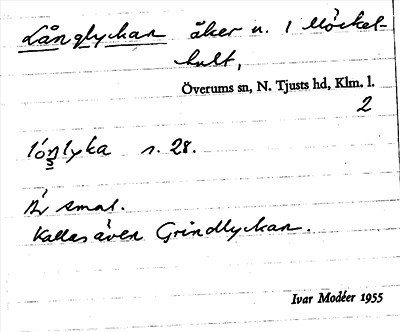 Långlyckan åker n. 1 Möckel-
hult,
Överums sn, N. Tjusts hd, Klm. l.
2
lóŋlyka s. 28.
Är smal.
Kallas även Grindlyckan.
Ivar Modéer 1955